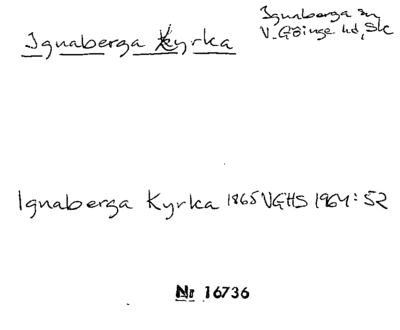 Ignaberga Kyrka
Ignaberga sn
V. Göinge hd, Sk
Ignaberga Kyrka 1865 VGHS 1964:52
Nr 16736